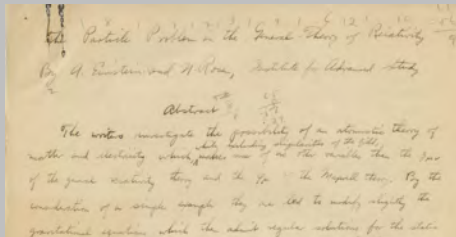 The Particle Problem in the General Theory of Relativity
By A. Einstein and N. Rosen, Institute for Advanced Study
Abstract
The writers investigate the possibility of an atomistic theory of
while excluding singularities of the field,
matter and electricity which, makes use of no other variables than the gμν
of the general relativity theory and the φμ of the Maxwell theory. By the
consideration of a simple example they are led to modify slightly the
gravitational equations which then admit regular solutions for the static